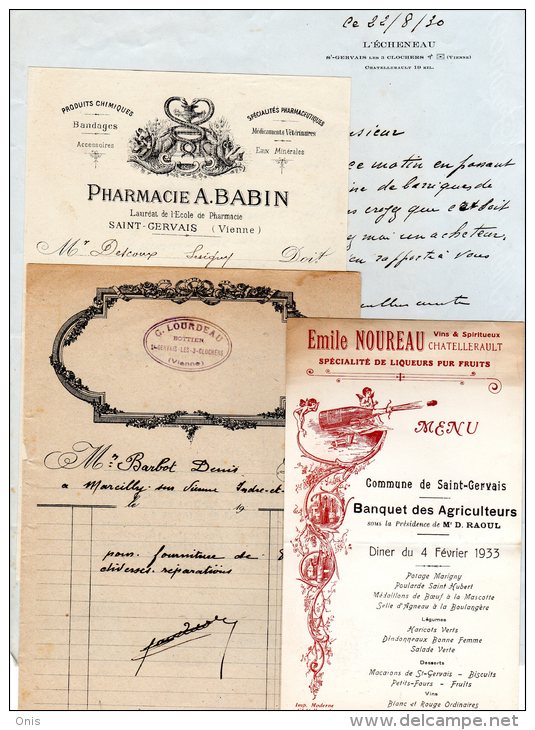 ce 22/8/30
L'ÉCHENEAU
St-GERVAIS LES 3 CLOCHERS (VIENNE)
CHATELLERAULT 19 KIL.
ce matin en passant
de barriques de
croyez que
un acheteur
rapport à vous
PRODUITS CHIMIQUES
Bandages
Accessoires
SPÉCIALITÉS PHARMACEUTIQUES
Médicaments Vétérinaires
Eaux Minérales
PHARMACIE A. BABIN
Lauréat de l'Ecole de Pharmacie
SAINT-GERVAIS (Vienne)
Mr Descoux Doit
G. LOURDEAU
BOTTIER
St-GERVAIS-LES-3-CLOCHERS
(Vienne)
Mr Barbot Denis
à Marcilly sur Vienne Indre-et-
le 19
pour fourniture de
diverses réparations
Emile NOUREAU Vins & Spiritueux
CHATELLERAULT
SPÉCIALITÉ DE LIQUEURS PUR FRUITS
MENU
Commune de Saint-Gervais
Banquet des Agriculteurs
sous la Présidence de Mr D. RAOUL
Diner du 4 Février 1933
Potage Marigny
Poularde Saint Hubert
Médaillons de Bœuf à la Mascotte
Selle d'Agneau à la Boulangère
Légumes
Haricots Verts
Dindonneaux Bonne Femme
Salade Verte
Desserts
Macarons de St-Gervais - Biscuits
Petits-Fours - Fruits
Vins
Blanc et Rouge Ordinaires
Imp. Moderne
Onis
delcampe.net